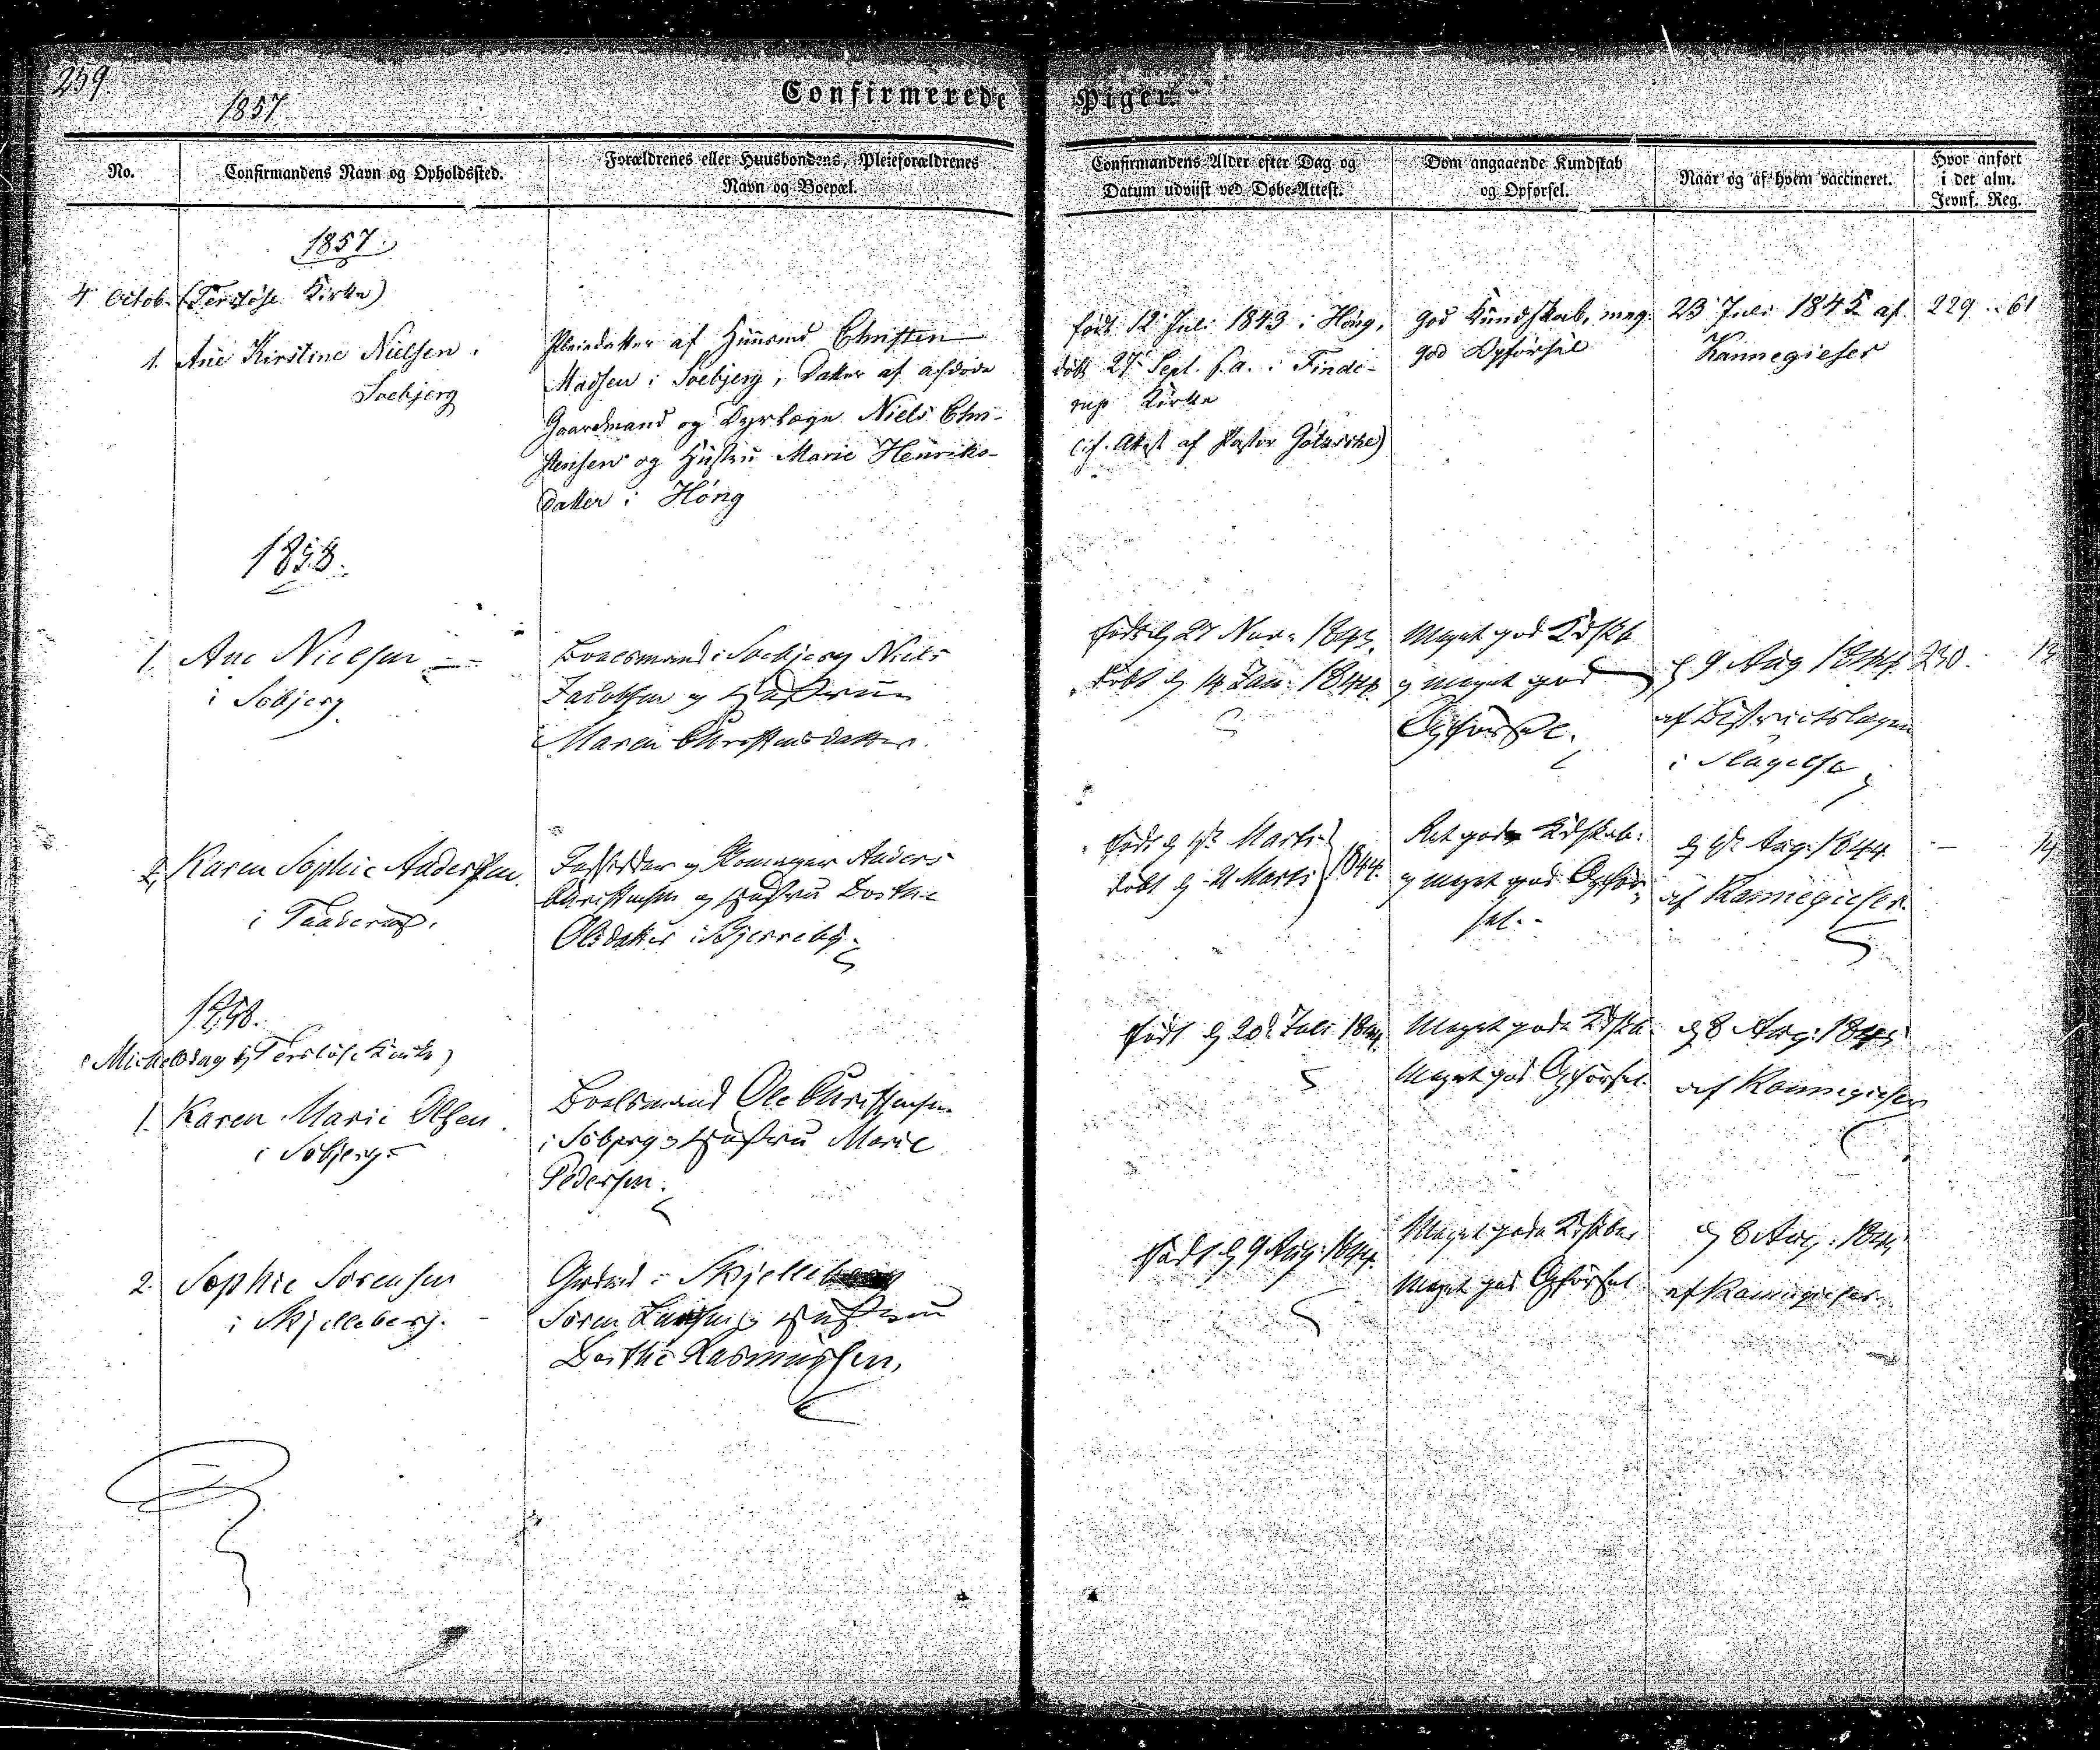 259.
1857
Confirmerede Piger.
No.
Confirmandens Navn og Opholdssted.
Forældrenes eller Huusbondens, Pleieforældrenes
Navn og Boepæl.
Confirmandens Alder efter Dag og
Datum udviist ved Døbe-Attest.
Dom angaaende Kundskab
og Opførsel.
Naar og af hvem vaccineret.
Hvor anført
i det alm.
Jevnf. Reg.
1857.
4 Octob. (Tersløse Kirke)
1. Ane Kirstine Nielsen.
Soebjerg
Pleiedatter af Huusmd Christen
Madsen i Soebjerg, Datter af afdøde
Gaardmand og Dyrlæge Niels Chri-
stensen og Hustru Marie Henriks-
datter i Høng
født 12 Juli 1843 i Høng,
døbt 27 Sept. s.a. i Finde-
rup Kirke
(if. Attest af Pastor Gøtzsche)
god Kundskab, meg.
god Opførsel
23 Juli 1845 af
Kannegieser
229 .. 61
1858.
1. Ane Nielsen
i Søbjerg
Boelsmand i Soebjerg Niels
Jacobsen og Hustrue
Maren Christensdatter.
født d. 27 Nov. 1843,
døbt d. 14 Jan. 1844
Meget god Kdskb
og meget god
Opførsel.
d 9 Aug 1844
af Districtslægen
i Slagelse
230. 13
2. Karen Sophie Andersen.
i Taaderup.
Indsidder og Skomager Anders
Christensen og Hustru Dorthe
Olsdatter i Bjerreby.
født d Marts
døbt d Marts } 1844.
Ret gode Kdskab.
og meget god Opfør
sel.
d Aug. 1844
af Kannegieser.
— 14
1858.
(Michelsdag i Tersløse Kirke)
1. Karen Marie Olsen.
i Søbjerg
Boelsmand Ole Christensen
i Søbjerg og Hustru Marie
Pedersen.
født d 20 Juli 1844.
Meget gode Kdskb.
Meget god Opførsel.
d 8 Aug. 1845
af Kannegieser
2. Sophie Sørensen
i Skjelleberg.
Grdmd i Skjelleberg
Søren Larsen og Hustru
Dorthe Rasmussen,
født d 9 Aug. 1844.
Meget gode Kdskber
Meget god Opførsel
d 8 Aug. 1845
af Kannegieser